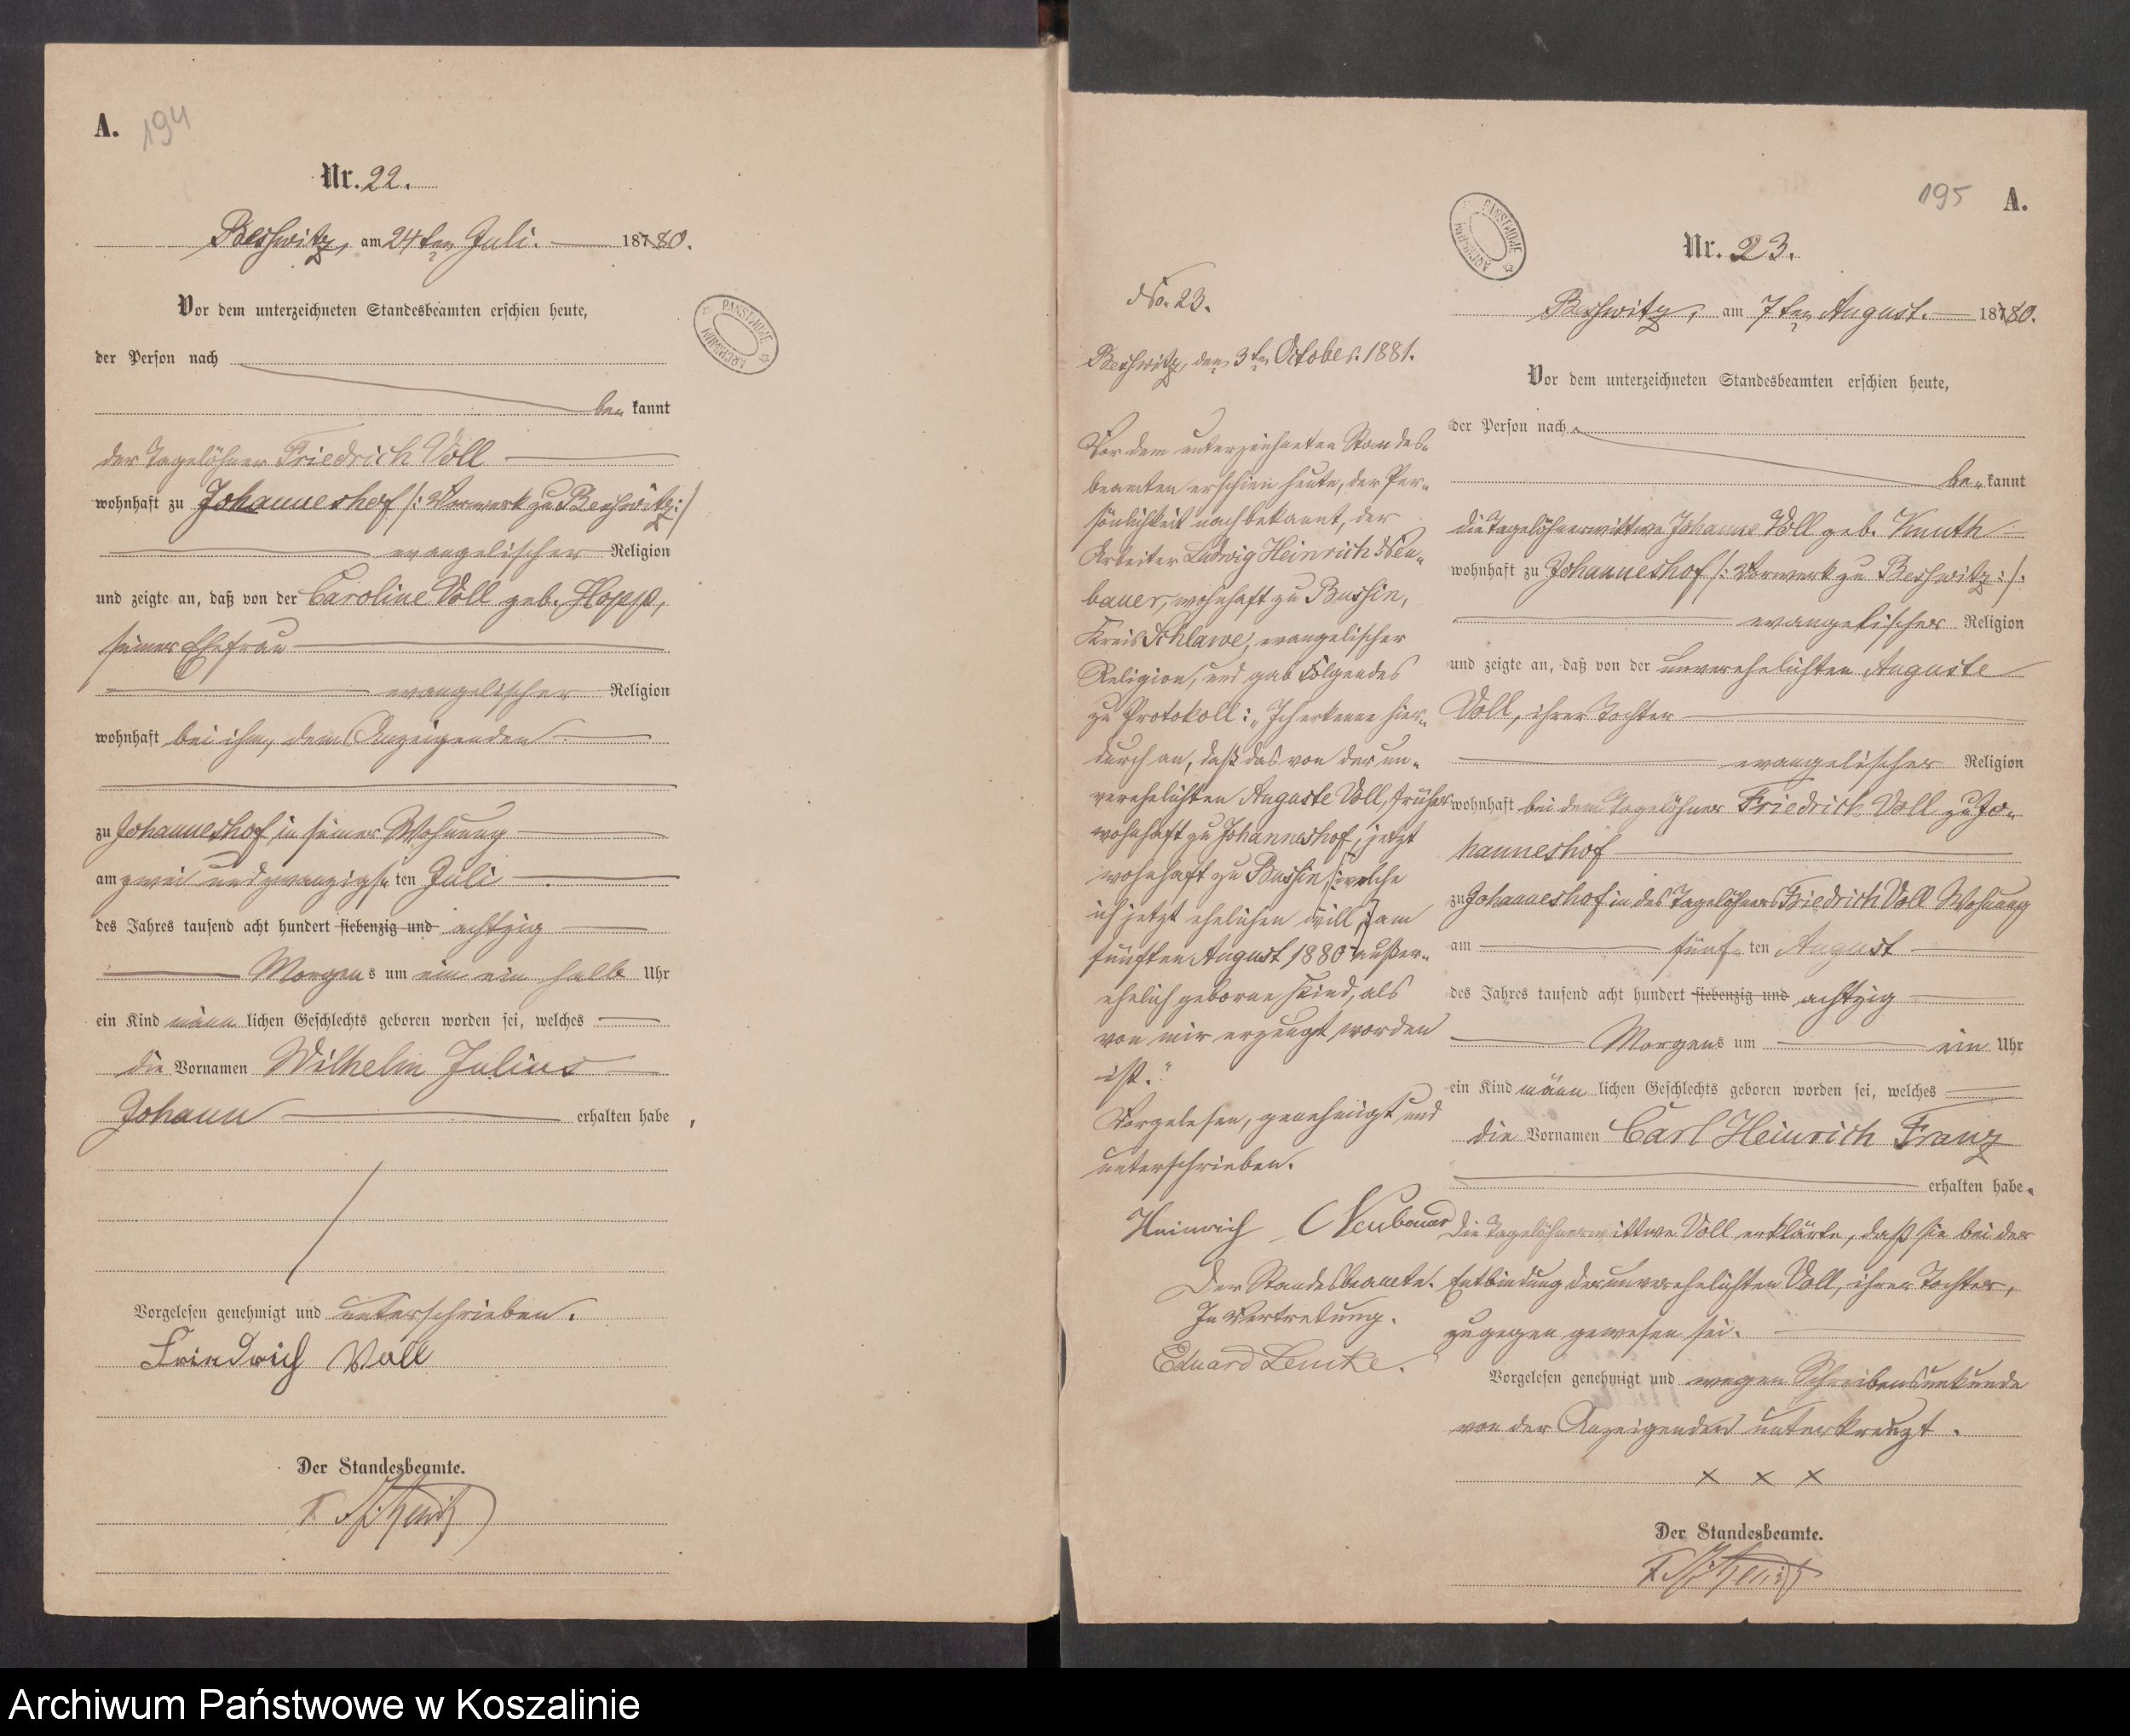 A. 194
Nr. 22.
Beßwitz, am 24ten Juli. 18780.
Vor dem unterzeichneten Standesbeamten erschien heute,
der Person nach
be kannt
der Tagelöhner Friedrich Voll
wohnhaft zu Johanneshof /: Vorwerk zu Beßwitz :/
evangelischer Religion
und zeigte an, daß von der Caroline Voll geb. Hopp,
seiner Ehefrau
evangelischer Religion
wohnhaft bei ihm, dem Anzeigenden
zu Johanneshof in seiner Wohnung
am zwei und zwanzigsten ten Juli
des Jahres tausend acht hundert siebenzig und achtzig
Morgens um ein ein halb Uhr
ein Kind männ lichen Geschlechts geboren worden sei, welches
die Vornamen Wilhelm Julius
Johann erhalten habe,
Vorgelesen genehmigt und unterschrieben.
Friedrich Voll
Der Standesbeamte.
ARCHIWUM PAŃSTWOWE
195 A.
Nr. 23.
Beßwitz, am 7ten August. 18780.
Vor dem unterzeichneten Standesbeamten erschien heute,
der Person nach
be kannt
die Tagelöhnerwittwe Johanne Voll geb. Knuth
wohnhaft zu Johanneshof /: Vorwerk zu Beßwitz :/.
evangelischer Religion
und zeigte an, daß von der unverehelichten Auguste
Voll, ihrer Tochter
evangelischer Religion
wohnhaft bei dem Tagelöhner Friedrich Voll zu Jo-
hanneshof
zu Johanneshof in des Tagelöhners Friedrich Voll Wohnung
am fünf ten August
des Jahres tausend acht hundert siebenzig und achtzig
Morgens um ein Uhr
ein Kind männ lichen Geschlechts geboren worden sei, welches
die Vornamen Carl Heinrich Franz
erhalten habe.
Die Tagelöhnerwittwe Voll erklärte, daß sie bei der
Entbindung der unverehelichten Voll, ihrer Tochter,
zugegen gewesen sei.
Vorgelesen genehmigt und wegen Schreibensunkunde
von der Anzeigenden unterkreuzt.
x x x
Der Standesbeamte.
ARCHIWUM PAŃSTWOWE
No. 23.
Beßwitz, den 3ten October 1881.
Vor dem unterzeichneten Standes-
beamten erschien heute, der Per-
sönlichkeit nach bekannt, der
Arbeiter Ludwig Heinrich Neu-
bauer, wohnhaft zu Bussin,
Kreis Schlawe, evangelischer
Religion, und gab Folgendes
zu Protokoll: „Ich erkenne hier-
durch an, daß das von der un-
verehelichten Auguste Voll, früher
wohnhaft zu Johanneshof, jetzt
wohnhaft zu Bussin, /:welche
ich jetzt ehelichen will,:/ am
fünften August 1880 außer-
ehelich geborne Kind, als
von mir erzeugt worden
ist.“
Vorgelesen, genehmigt und
unterschrieben.
Heinrich Neubauer
Der Standesbeamte.
In Vertretung.
Eduard Lemke.
Archiwum Państwowe w Koszalinie